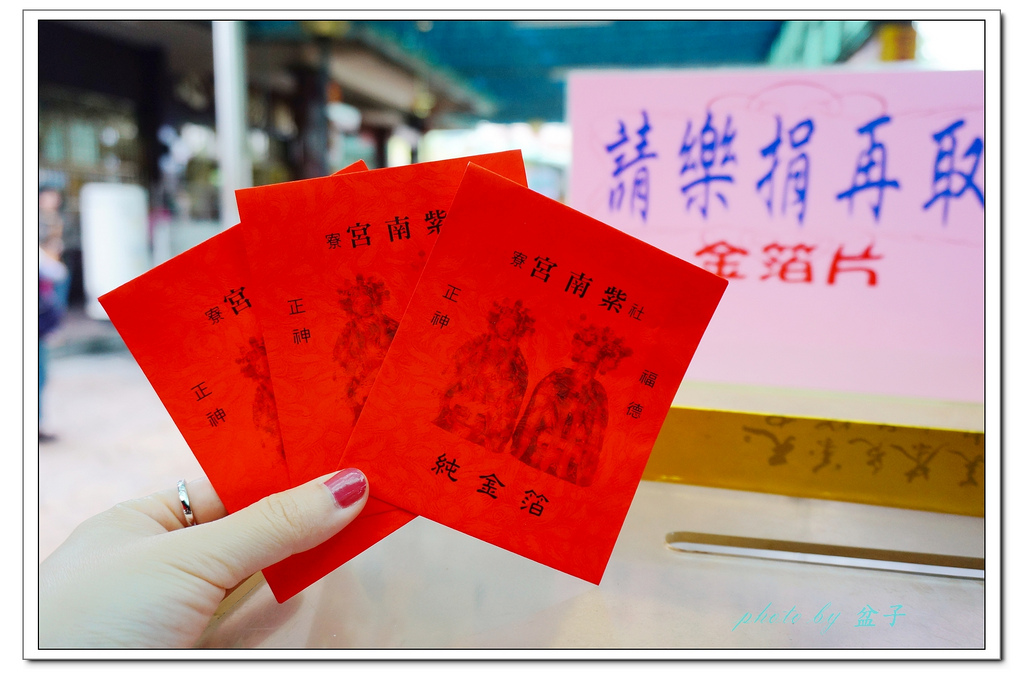 請樂捐再取
金箔片
社紫南宮寮
福德
正神
純金箔
紫南宮寮
正神
宮寮
正神
photo by 盆子